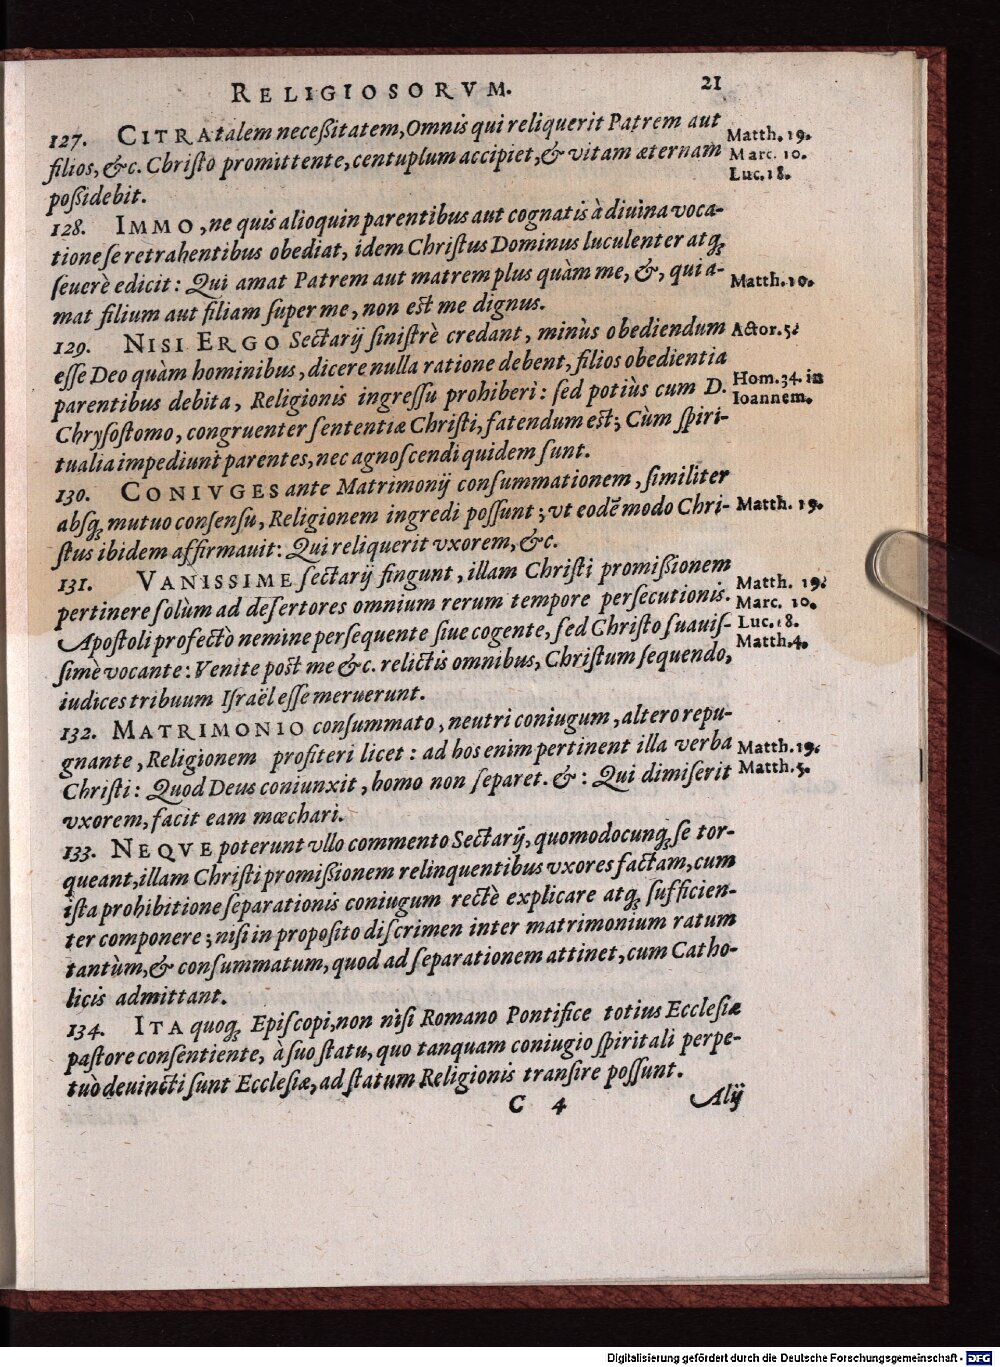 RELIGIOSORVM. 21
127. CITRA talem neceßitatem, Omnis qui reliquerit Patrem aut
filios, &c. Christo promittente, centuplum accipiet, & vitam æternam
poßidebit.
Matth. 19.
Marc. 10.
Luc. 18.
128. IMMO, ne quis alioquin parentibus aut cognatis à diuina voca-
tione se retrahentibus obediat, idem Christus Dominus luculenter atq;
seuerè edicit: Qui amat Patrem aut matrem plus quàm me, &, qui a-
mat filium aut filiam super me, non est me dignus.
Matth. 10.
129. NISI ERGO Sectarij sinistrè credant, minùs obediendum
esse Deo quàm hominibus, dicere nulla ratione debent, filios obedientia
parentibus debita, Religionis ingressu prohiberi: sed potiùs cum D.
Chrysostomo, congruenter sententiæ Christi, fatendum est; Cùm spiri-
tualia impediunt parentes, nec agnoscendi quidem sunt.
Actor. 5.
Hom. 34. in
Ioannem.
130. CONIVGES ante Matrimonij consummationem, similiter
absq; mutuo consensu, Religionem ingredi possunt; vt eodē modo Chri-
stus ibidem affirmauit: Qui reliquerit vxorem, &c.
Matth. 19.
131. VANISSIME sectarij fingunt, illam Christi promißionem
pertinere solùm ad desertores omnium rerum tempore persecutionis.
Apostoli profectò nemine persequente siue cogente, sed Christo suauis-
simè vocante: Venite post me &c. relictis omnibus, Christum sequendo,
iudices tribuum Israël esse meruerunt.
Matth. 19.
Marc. 10.
Luc. 18.
Matth. 4.
132. MATRIMONIO consummato, neutri coniugum, altero repu-
gnante, Religionem profiteri licet: ad hos enim pertinent illa verba
Christi: Quod Deus coniunxit, homo non separet. &: Qui dimiserit
vxorem, facit eam mœchari.
Matth. 19.
Matth. 5.
133. NEQVE poterunt vllo commento Sectarij, quomodocunq; se tor-
queant, illam Christi promißionem relinquentibus vxores factam, cum
ista prohibitione separationis coniugum rectè explicare atq; sufficien-
ter componere; nisi in proposito discrimen inter matrimonium ratum
tantùm, & consummatum, quod ad separationem attinet, cum Catho-
licis admittant.
134. ITA quoq; Episcopi, non nisi Romano Pontifice totius Ecclesiæ
pastore consentiente, à suo statu, quo tanquam coniugio spiritali perpe-
tuò deuincti sunt Ecclesiæ, ad statum Religionis transire possunt.
C 4 Alij
Digitalisierung gefördert durch die Deutsche Forschungsgemeinschaft - DFG